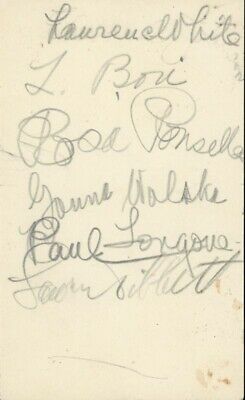 Laurence White
L. Bori
Rosa Ponselle
Ganna Walska
Paul Longone
Lawrence Tibbett